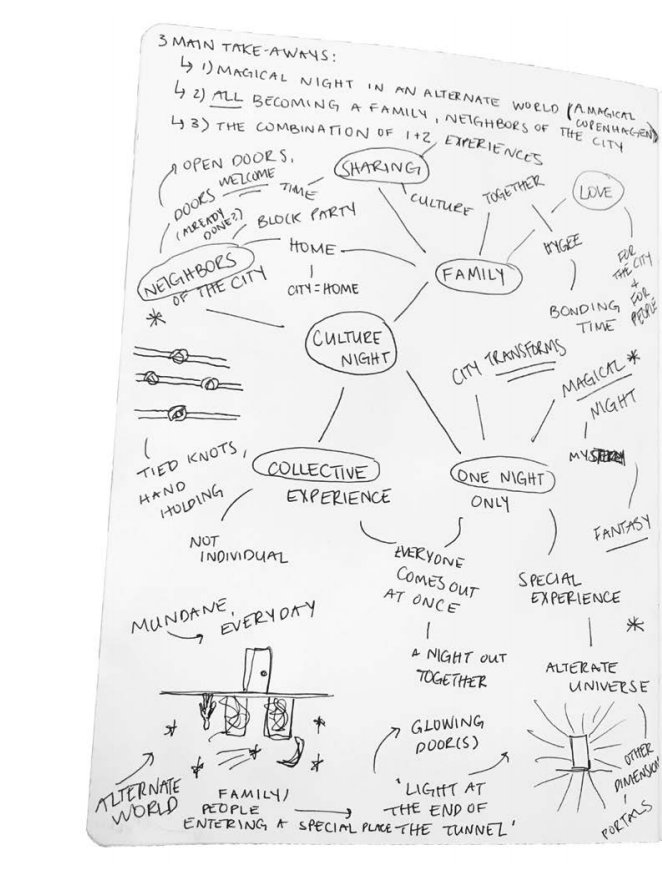 3 MAIN TAKE-AWAYS:
↳ 1) MAGICAL NIGHT IN AN ALTERNATE WORLD (A MAGICAL
COPENHAGEN)
↳ 2) ALL BECOMING A FAMILY, NEIGHBORS OF THE CITY
↳ 3) THE COMBINATION OF 1+2
EXPERIENCES
OPEN DOORS,
DOORS WELCOME
(ALREADY
DONE?)
TIME
SHARING
CULTURE
TOGETHER
LOVE
BLOCK PARTY
HOME
CITY = HOME
NEIGHBORS
OF THE CITY
*
FAMILY
HYGGE
BONDING
TIME
FOR
THE CITY
+
FOR
PEOPLE
CULTURE
NIGHT
CITY TRANSFORMS
MAGICAL *
NIGHT
FANTASY
TIED KNOTS,
HAND
HOLDING
COLLECTIVE
EXPERIENCE
ONE NIGHT
ONLY
NOT
INDIVIDUAL
EVERYONE
COMES OUT
AT ONCE
A NIGHT OUT
TOGETHER
SPECIAL
EXPERIENCE
*
ALTERATE
UNIVERSE
OTHER
DIMENSION
PORTALS
MUNDANE,
EVERYDAY
ALTERNATE
WORLD
FAMILY/
PEOPLE
ENTERING A SPECIAL PLACE
GLOWING
DOOR(S)
'LIGHT AT
THE END OF
THE TUNNEL'